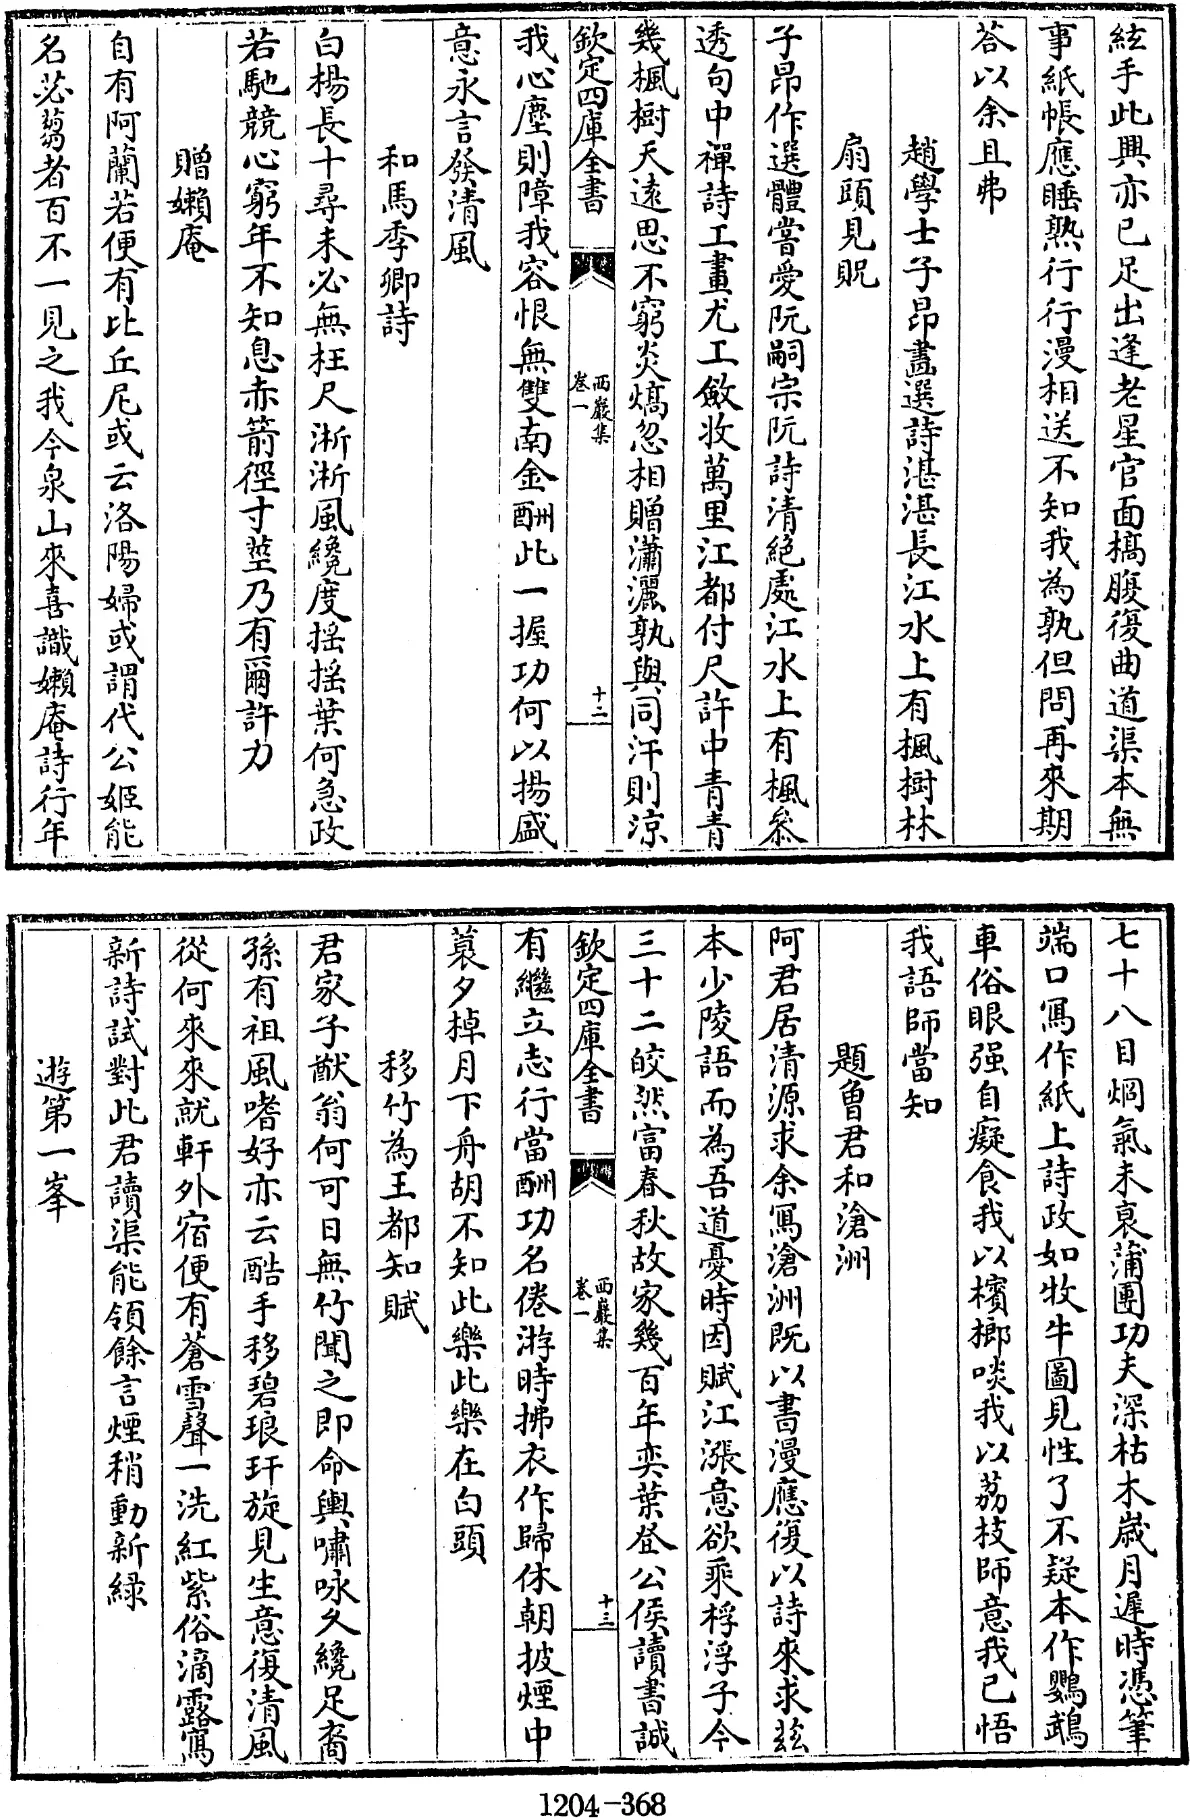 絃手此興亦已足出逢老星官面槁腹復曲道渠本無
事紙帳應睡熟行行漫相送不知我為孰但問再來期
荅以余且弗
趙學士子昂畫選詩湛湛長江水上有楓樹林
扇頭見貺
子昂作選體嘗愛阮嗣宗阮詩清絶處江水上有楓叅
透句中禪詩工畫尤工斂收萬里江都付尺許中青青
幾楓樹天遠思不窮炎熇忽相贈瀟灑孰與同汗則涼
欽定四庫全書
西巖集
卷一
十二
我心塵則障我容恨無雙南金酬此一握功何以揚盛
意永言發清風
和馬季卿詩
白楊長十尋未必無枉尺淅淅風纔度揺揺葉何急政
若馳競心窮年不知息赤箭徑寸莖乃有爾許力
贈嬾庵
自有阿蘭若便有比丘尼或云洛陽婦或謂代公姬能
名苾蒭者百不一見之我今泉山來喜識嬾庵詩行年
七十八目烱氣未衰蒲團功夫深枯木歳月遲時憑筆
端口寫作紙上詩政如牧牛圖見性了不疑本作鸚鵡
車俗眼强自癡食我以檳榔啖我以荔枝師意我已悟
我語師當知
題曾君和滄洲
阿君居清源求余寫滄洲既以書漫應復以詩來求兹
本少陵語而為吾道憂時因賦江漲意欲乘桴浮子今
三十二皎然富春秋故家幾百年奕葉登公侯讀書誠
欽定四庫全書
西巖集
卷一
十三
有繼立志行當酬功名倦游時拂衣作歸休朝披煙中
蓑夕棹月下舟胡不知此樂此樂在白頭
移竹為王都知賦
君家子猷翁何可日無竹聞之即命輿嘯咏久纔足裔
孫有祖風嗜好亦云酷手移碧琅玕旋見生意復清風
從何來來就軒外宿便有蒼雪聲一洗紅紫俗滴露寫
新詩試對此君讀渠能領餘言煙稍動新緑
遊第一峯
1204-368